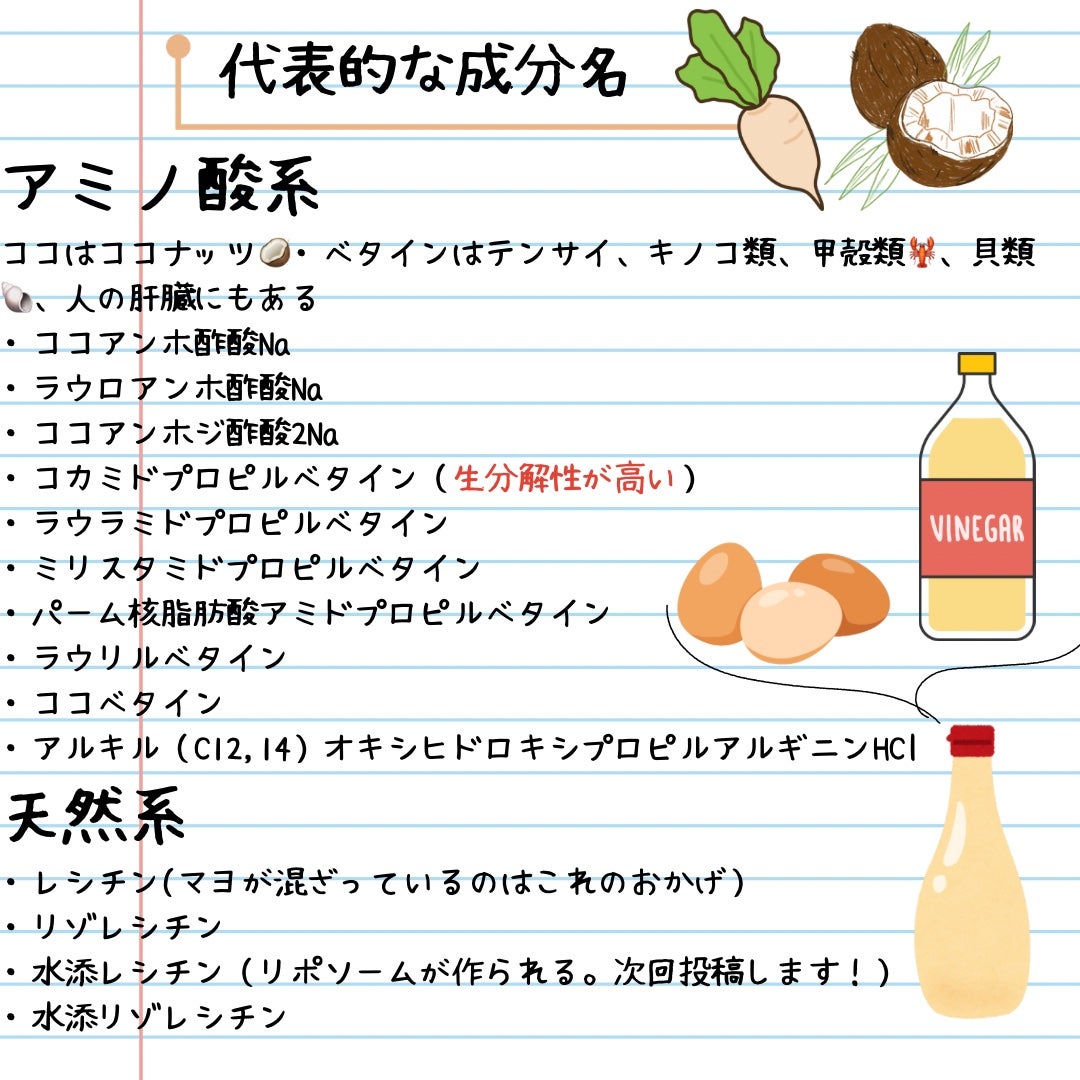 代表的な成分名
アミノ酸系
ココはココナッツ🥥・ベタインはテンサイ、キノコ類、甲殻類🦞、貝類
🐚、人の肝臓にもある
・ココアンホ酢酸Na
・ラウロアンホ酢酸Na
・ココアンホジ酢酸2Na
・コカミドプロピルベタイン（生分解性が高い）
・ラウラミドプロピルベタイン
・ミリスタミドプロピルベタイン
・パーム核脂肪酸アミドプロピルベタイン
・ラウリルベタイン
・ココベタイン
・アルキル（C12,14）オキシヒドロキシプロピルアルギニンHCl
VINEGAR
天然系
・レシチン(マヨが混ざっているのはこれのおかげ)
・リゾレシチン
・水添レシチン（リポソームが作られる。次回投稿します！）
・水添リゾレシチン